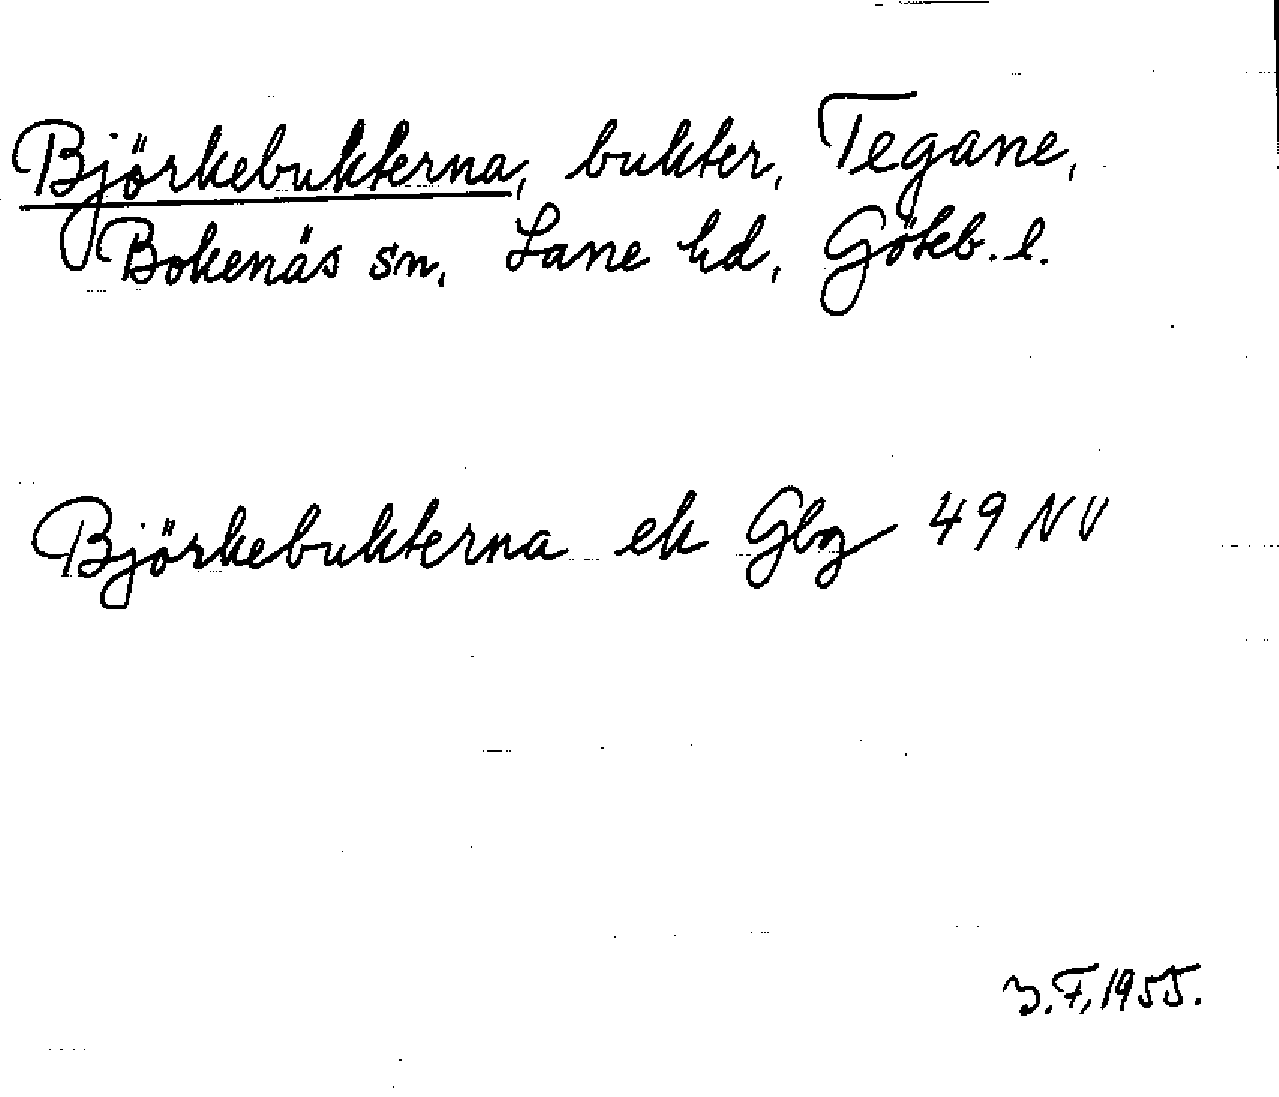 Björkebukterna, bukter, Tegane,
Bokenäs sn, Lane hd, Göteb. l.
Björkebukterna ek Gbg 49 NV
F, 1955.